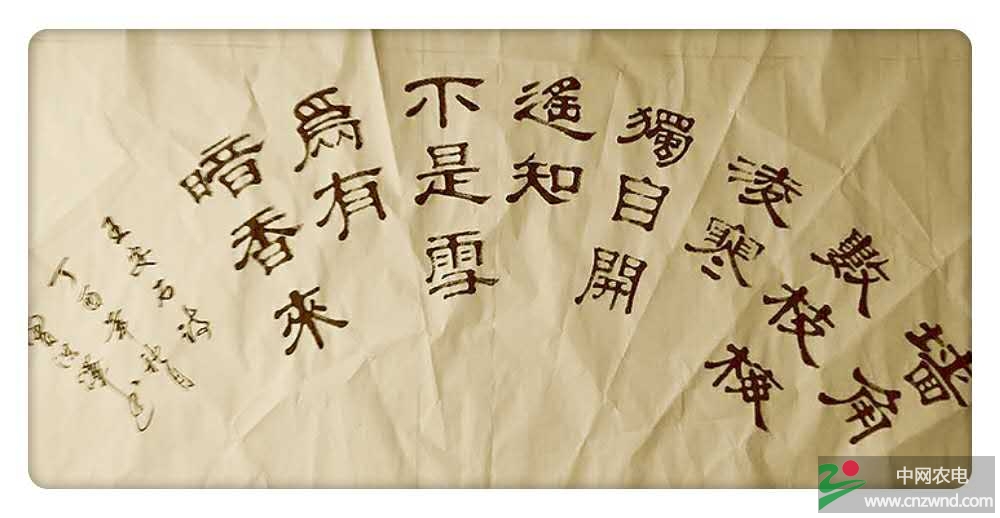 墙角
數枝梅
凌寒
獨自開
遙知
不是雪
爲有
暗香來
王安石诗
丁酉
中网农电
www.cnzwnd.com